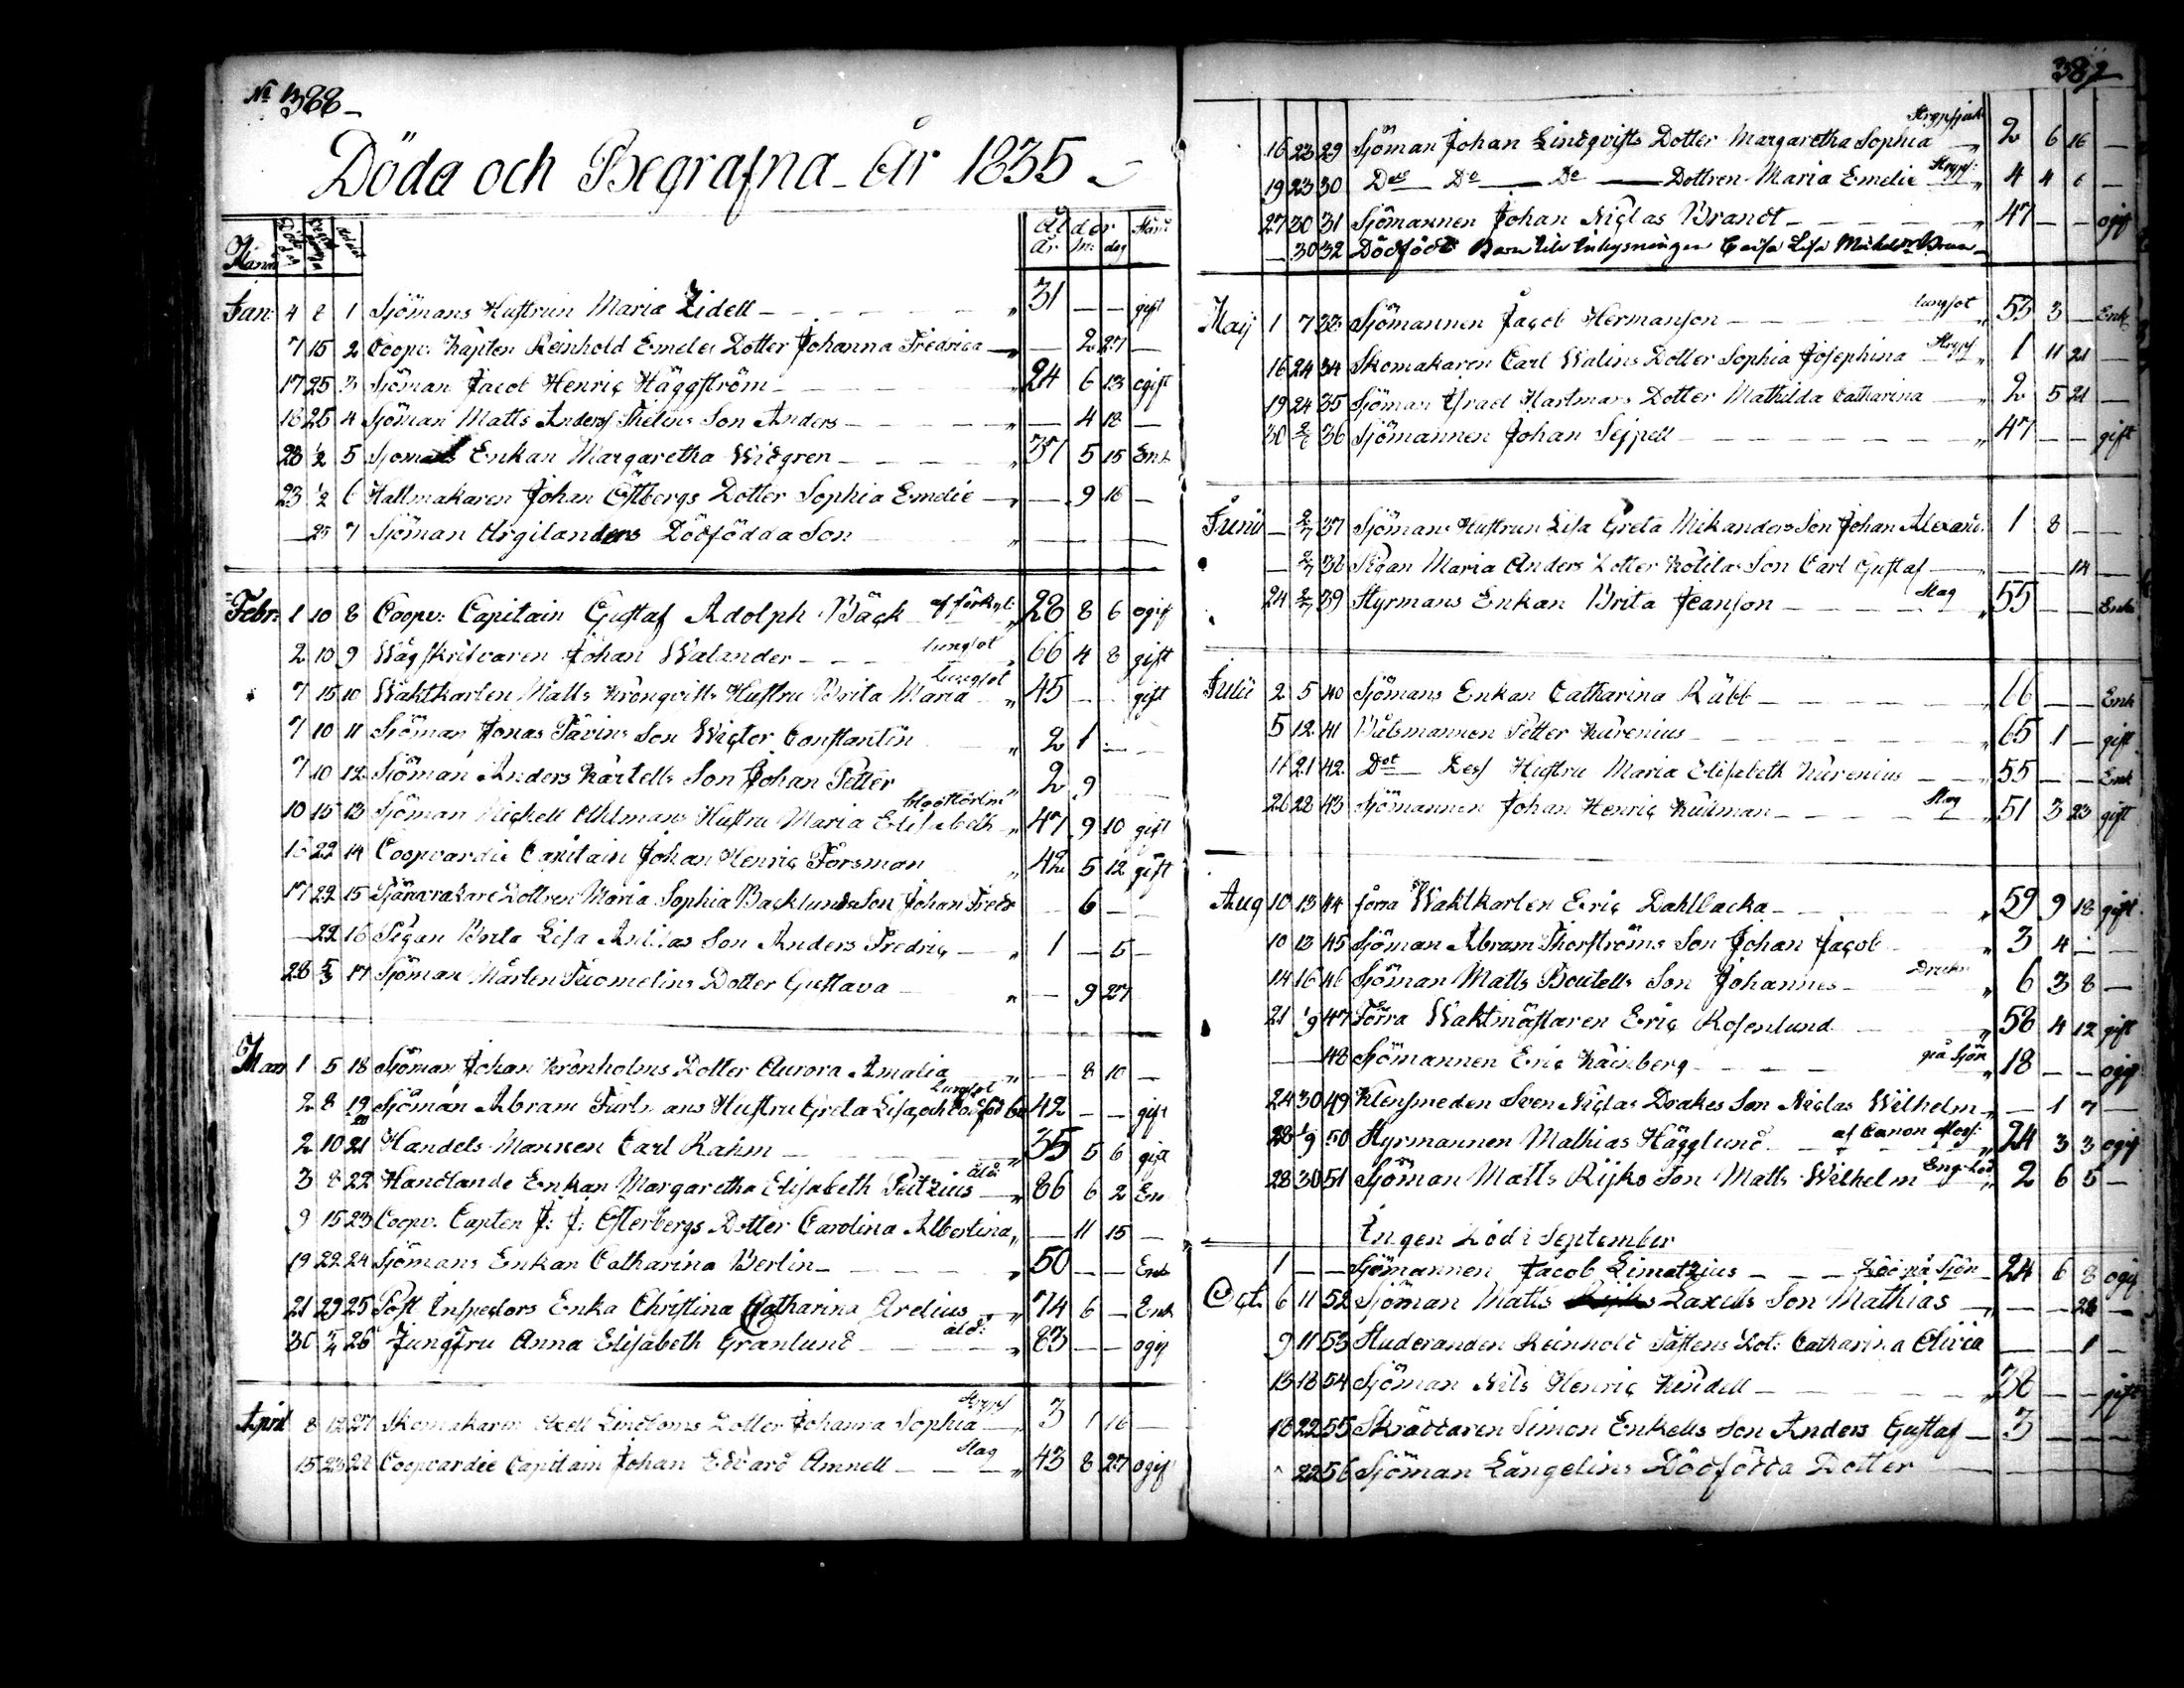 No 388
Döda och Begrafna År 1835
Månad Döde dag Begrafne Ålder Stånd
År M: dag
Jan: 4 8 1 Sjömans Hustrun Maria Zidell 31 — — gift
7 15 2 Coopv: Kapten Reinhold Emeles Dotter Johanna Fredrica — 2 27 —
17 25 3 Sjöman Jacob Henric Häggström 24 6 13 ogift
18 25 4 Sjöman Matts Anders Thelins Son Anders — 4 18 —
28 1/2 5 Sjömans Enkan Margaretha Widgren 37 5 15 Enk
23 1/2 6 Hattmakaren Johan Östbergs Dotter Sophia Emelie — 9 16 —
— 25 7 Sjöman Argilanders Dödfödda Son — — —
Febr: 1 10 8 Coopv: Capitain Gustaf Adolph Bäck af förkyl: 28 8 6 ogift
2 10 9 Wågskrifvaren Johan Walander lungsot 66 4 8 gift
7 15 10 Waktkarlen Matts Kronqvists Hustru Brita Maria Lungsot 45 — — gift
7 10 11 Sjöman Jonas Tävins Son Wictor Constantin 2 1 — —
7 10 12 Sjöman Anders Kärtells Son Johan Petter 2 9
10 15 13 Sjöman Mickell Ahlmans Hustru Maria Elisabeth 47 9 10 gift
16 22 14 Coopvardie Capitain Johan Henric Forsman 42 5 12 gift
17 22 15 Dottren Maria Sophia Backlunds Son Johan Fredr — 6 — —
— 22 16 Pigan Brita Lisa Anttilas Son Anders Fredric 1 — 5 —
28 5/3 17 Sjöman Mårten Tuomelins Dotter Gustava — 9 27
Mars 1 5 18 Sjöman Johan Kronholms Dotter Aurora Amalia — 8 10 —
2 8 19 20 Sjöman Abram Hustru Greta Lisa, och Lungsot 42 — — gift
2 10 21 Handels Mannen Carl Rahm 35 5 6 gift
3 8 22 Handlande Enkan Margaretha Elisabeth Peitzius åld: 86 6 2 En
9 15 23 Coopv. Capten J: J: Österbergs Dotter Carolina Albertina — 11 15 —
19 22 24 Sjömans Enkan Catharina Berlin 50 — — Enk
21 29 25 Post Inspectors Enka Christina Catharina Arelius 74 6 — Enk
30 5/4 26 Jungfru Anna Elisabeth Granlund åld: 83 — — ogif
April 8 12 27 Skomakaren Lindloms Dotter Johanna Sophia Strypsj 3 1 16 —
15 23 28 Coopvardie Capitain Johan Edvard Amnell Slag 43 8 27 ogif
389
16 23 29 Sjöman Johan Lindqvists Dotter Margaretha Sophia Strypsjuk 2 6 16 —
19 23 30 Dito Do Do Dottren Maria Emelie Strypsj: 4 4 6 —
27 30 31 Sjömannen Johan Niclas Brandt 47 — — ogif
— 30 32 Dödfödt Barn till Inhysningen Caisa Lisa
Maij 1 7 33 Sjömannen Jacob Hermanson lungsot 53 3 — Enk
16 24 34 Skomakaren Carl Walins Dotter Sophia Josephina Strypsj 1 11 21 —
19 24 35 Sjöman Israel Hartmans Dotter Mathilda Catharina 2 5 21 —
30 2/6 36 Sjömannen Johan Seppell 47 — — gift
Junii — 2/7 37 Sjömans Hustrun Lisa Greta Mikanders Son Johan Alexand: 1 8 — —
— 2/7 38 Pigan Maria Anders Dotter Kotilas Son Carl Gustaf — — 14 —
24 2/7 39 Styrmans Enkan Brita Jeanson Slag 55 — — Enk
Julii 2 5 40 Sjömans Enkan Catharina Räbb 66 — — Enk
5 12 41 Båtsmannen Petter Kurenius 65 1 — gift
11 21 42 Dot Dess Hustru Maria Elisabeth Kurenius 55 — — Enk
26 28 43 Sjömannen Johan Henric Kullman Slag 51 3 23 gift
Aug 10 13 44 förra Waktkarlen Eric Dahlbacka 59 9 18 gift
10 13 45 Sjöman Abram Thorströms Son Johan Jacob 3 4 — —
14 16 46 Sjöman Matts Boutells Son Johannes Drukn 6 3 8 —
21 1/9 47 Förra Waktmästaren Eric Rosenlund 58 4 12 gift
— — 48 Sjömannen Eric Käinberg på Sjön 18 — — ogif
24 30 49 Klensmeden Sven Niclas Drakes Son Niclas Wilhelm — 1 7 —
28 1/9 50 Styrmannen Mathias Hägglund af Canon 24 3 3 ogif
28 30 51 Sjöman Matts Rijks Son Matts Wilhelm 2 6 5 —
Ingen död i September
1 — — Sjömannen Jacob Limatzius Död på Sjön 24 6 8 ogif
Oct. 6 11 52 Sjöman Matts Laxells Son Mathias — — 28 —
9 11 53 Studeranden Reinhold Dot: Catharina Olivia — — 1 —
13 18 54 Sjöman Nils Henric Kendell 38 — — gift
16 22 55 Skräddaren Simon Enkells Son Anders Gustaf 3 — — —
22 56 Sjöman Längelins Dödfödda Dotter — — — —